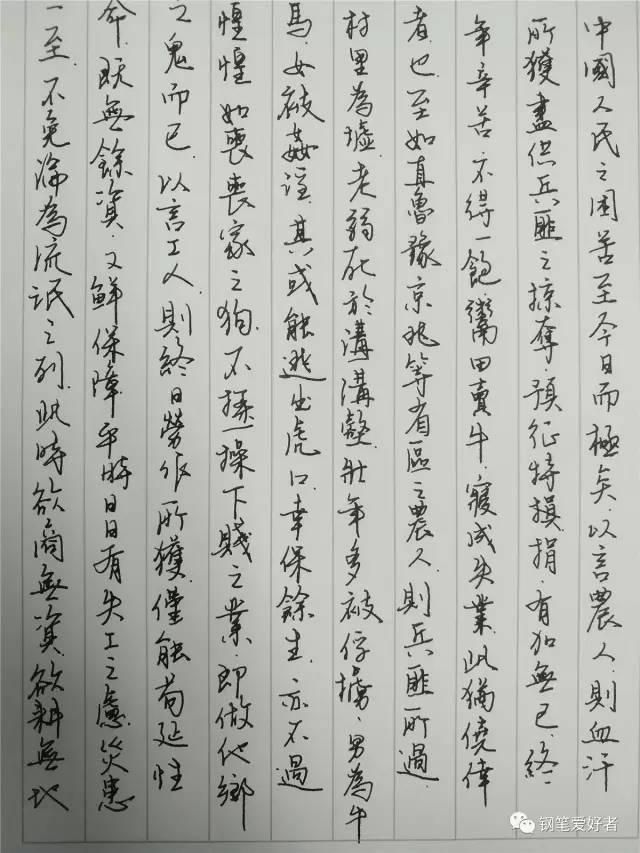 中國人民之困苦至今日而極矣.以言農人.則血汗
所獲盡供兵匪之掠奪.預征特損捐.有加無已.終
年辛苦不得一飽.鬻田賣牛.寖成失業.此猶僥倖
者也.至如直魯豫京兆等省區之農人.則兵匪所過.
村里為墟.老弱死於溝溝壑.壯年多被俘擄.男為牛
馬.女被姦淫.其或能逃出虎口.幸保餘生.亦不過
惶惶如喪喪家之狗.不操操下賤之業.即做他鄉
之鬼而已.以言工人.則終日勞作所獲.僅能苟延性
命.既無餘資.又鮮保障.平時日日有失工之慮.災患
一至.不免淪為流氓之列.此時欲商無資.欲耕無地
钢笔爱好者